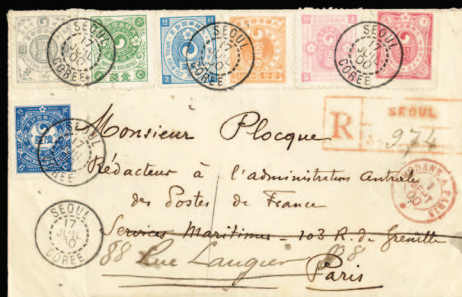 SEOUL
17
JUIL
00
COREE
SEOUL
17
JUIL
00
COREE
SEOUL
17
JUIL
00
COREE
SEOUL
R
974
Monsieur Plocque
Rédacteur à l'administration
des Postes de France
Services Maritimes - 103 R. de Grenelle
88 Rue Laugier 88
Paris
SEOUL
JUIL
0
COREE
PARIS